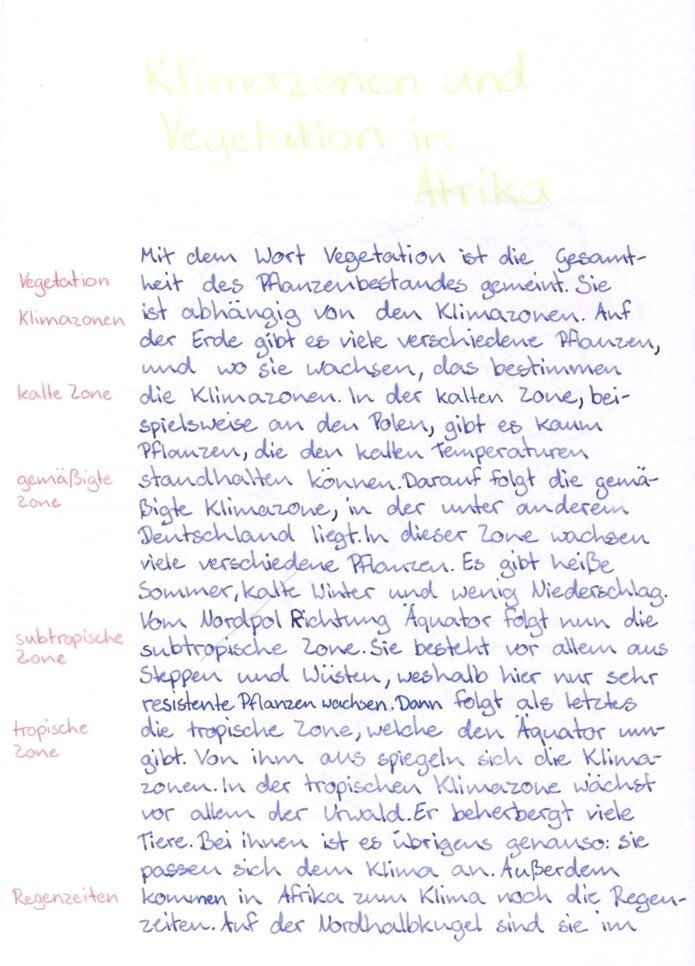 Klimazonen und
Vegetation in
Afrika
Mit dem Wort Vegetation ist die Gesamt-
Vegetation
heit des Pflanzenbestandes gemeint. Sie
Klimazonen
ist abhängig von den Klimazonen. Auf
der Erde gibt es viele verschiedene Pflanzen,
und wo sie wachsen, das bestimmen
kalte Zone
die Klimazonen. In der kalten Zone, bei-
spielsweise an den Polen, gibt es kaum
Pflanzen, die den kalten Temperaturen
gemäßigte
Zone
standhalten können. Darauf folgt die gemä-
ßigte Klimazone, in der unter anderem
Deutschland liegt. In dieser Zone wachsen
viele verschiedene Pflanzen. Es gibt heiße
Sommer, kalte Winter und wenig Niederschlag.
Vom Nordpol Richtung Äquator folgt nun die
subtropische
Zone
subtropische Zone. Sie besteht vor allem aus
Steppen und Wüsten, weshalb hier nur sehr
resistente Pflanzen wachsen. Dann folgt als letztes
tropische
Zone
die tropische Zone, welche den Äquator um-
gibt. Von ihm aus spiegeln sich die Klima-
zonen. In der tropischen Klimazone wächst
vor allem der Urwald. Er beherbergt viele
Tiere. Bei ihnen ist es übrigens genauso: sie
passen sich dem Klima an. Außerdem
Regenzeiten
kommen in Afrika zum Klima noch die Regen-
zeiten. Auf der Nordhalbkugel sind sie im